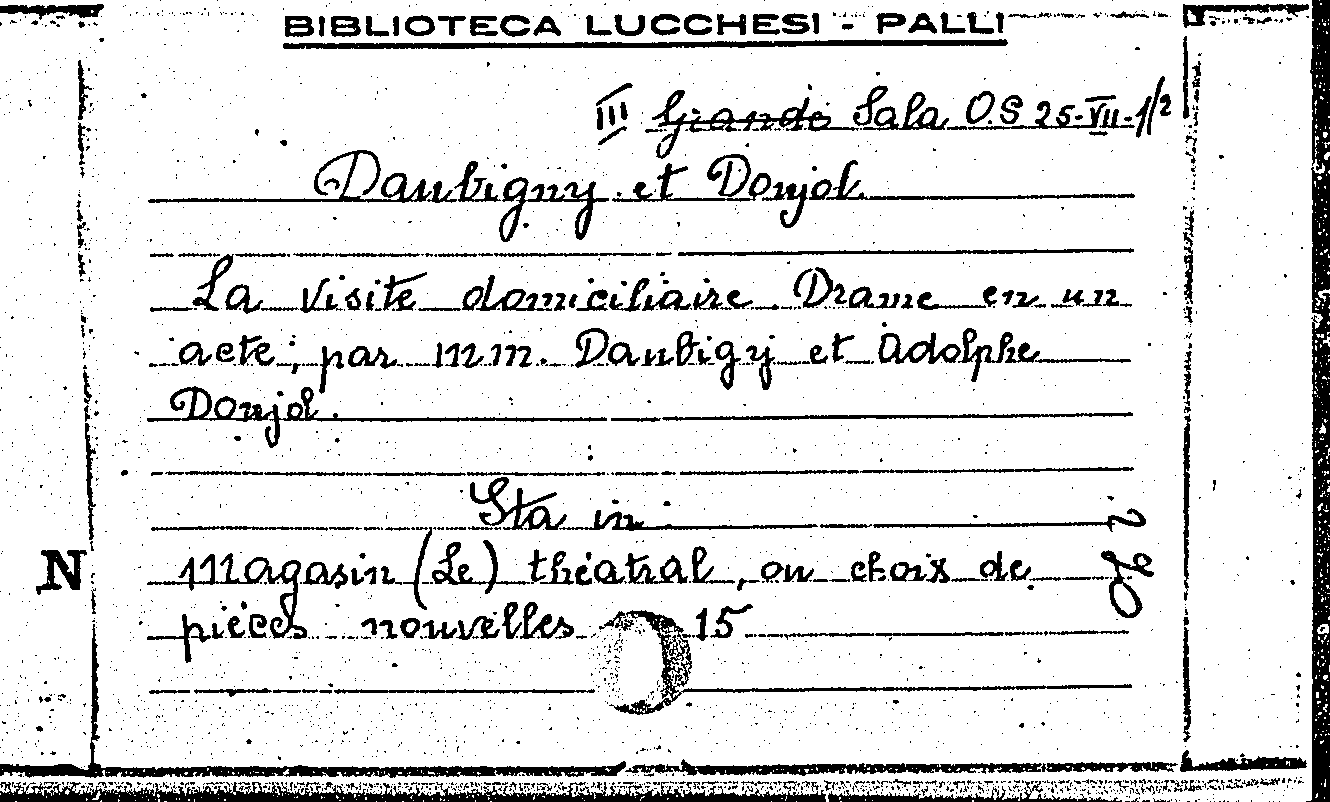 BIBLIOTECA LUCCHESI - PALLI
III Grande Sala O.S 25-VII-1/2
Daubigny et Doujol.
La visite domiciliaire. Drame en un
acte; par MM. Daubigy et Adolphe
Doujol.
Sta in:
N
Magasin (Le) théatral, ou choix de
pièces nouvelles 15